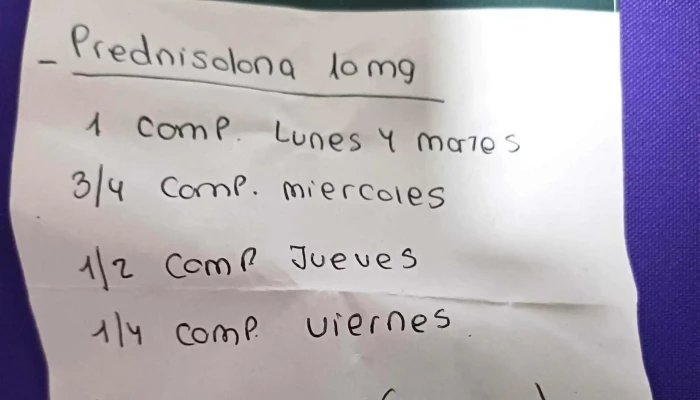 - Prednisolona 10mg
1 comp. Lunes y martes
3/4 comp. miercoles
1/2 comp Jueves
1/4 comp. viernes.